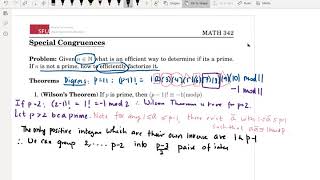 SFU
MATH 342
Special Congruences
Problem: Given n ∈ N what is an efficient way to determine if its a prime.
If n is not a prime, how to efficiently factorize it.
Theorems Digress: p=11: (p-1)! = 1 (2)(3)(4)(5)(6)(7)(8)(9)(10) mod 11
-1 mod 11
1. (Wilson's Theorem) If p is prime, then (p − 1)! ≡ −1(mod p)
If p=2; (2-1)! = 1! = -1 mod 2 ∴ Wilson Theorem is true for p=2.
Let p>2 be a prime. Note: for any 1≤a≤p-1, there exist ā with 1≤ā≤p-1
such that aā≡1 mod p
The only positive integers which are their own inverse are 1 & p-1
∴ We can group 2, .... p-2 into p-3/2 pairs of inte